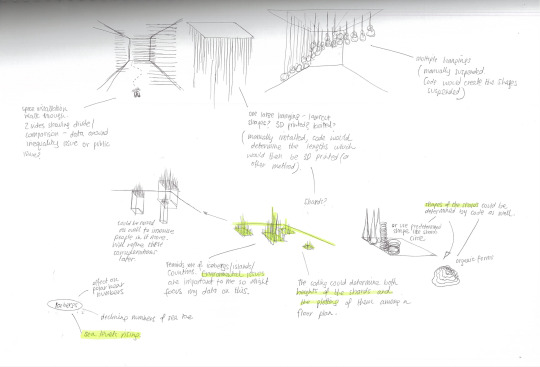 multiple hangings
(manually suspended.
Code would create the shapes
suspended)
open installation
walk through
2 sides showing divide/
comparison - data around
inequality
one large hanging -
shape? 3D printed?
(manually installed, code would
determine the lengths which
would then be 3D printed (or
other method)
Shards?
could be raised
people in it more.
Will refine these
considerations
later.
Reminds me of icebergs/islands/
countries. Environmental issues
are important to me so might
focus my data on this.
The coding could determine both
heights of the shards and
the plotting of them among a
floor plan.
shapes of the shapes could be
determined by code as well.
or use predetermined
shape like shards
cone
organic forms
effect on
polar bear
numbers
Icebergs
declining numbers of sea ice
sea levels rising